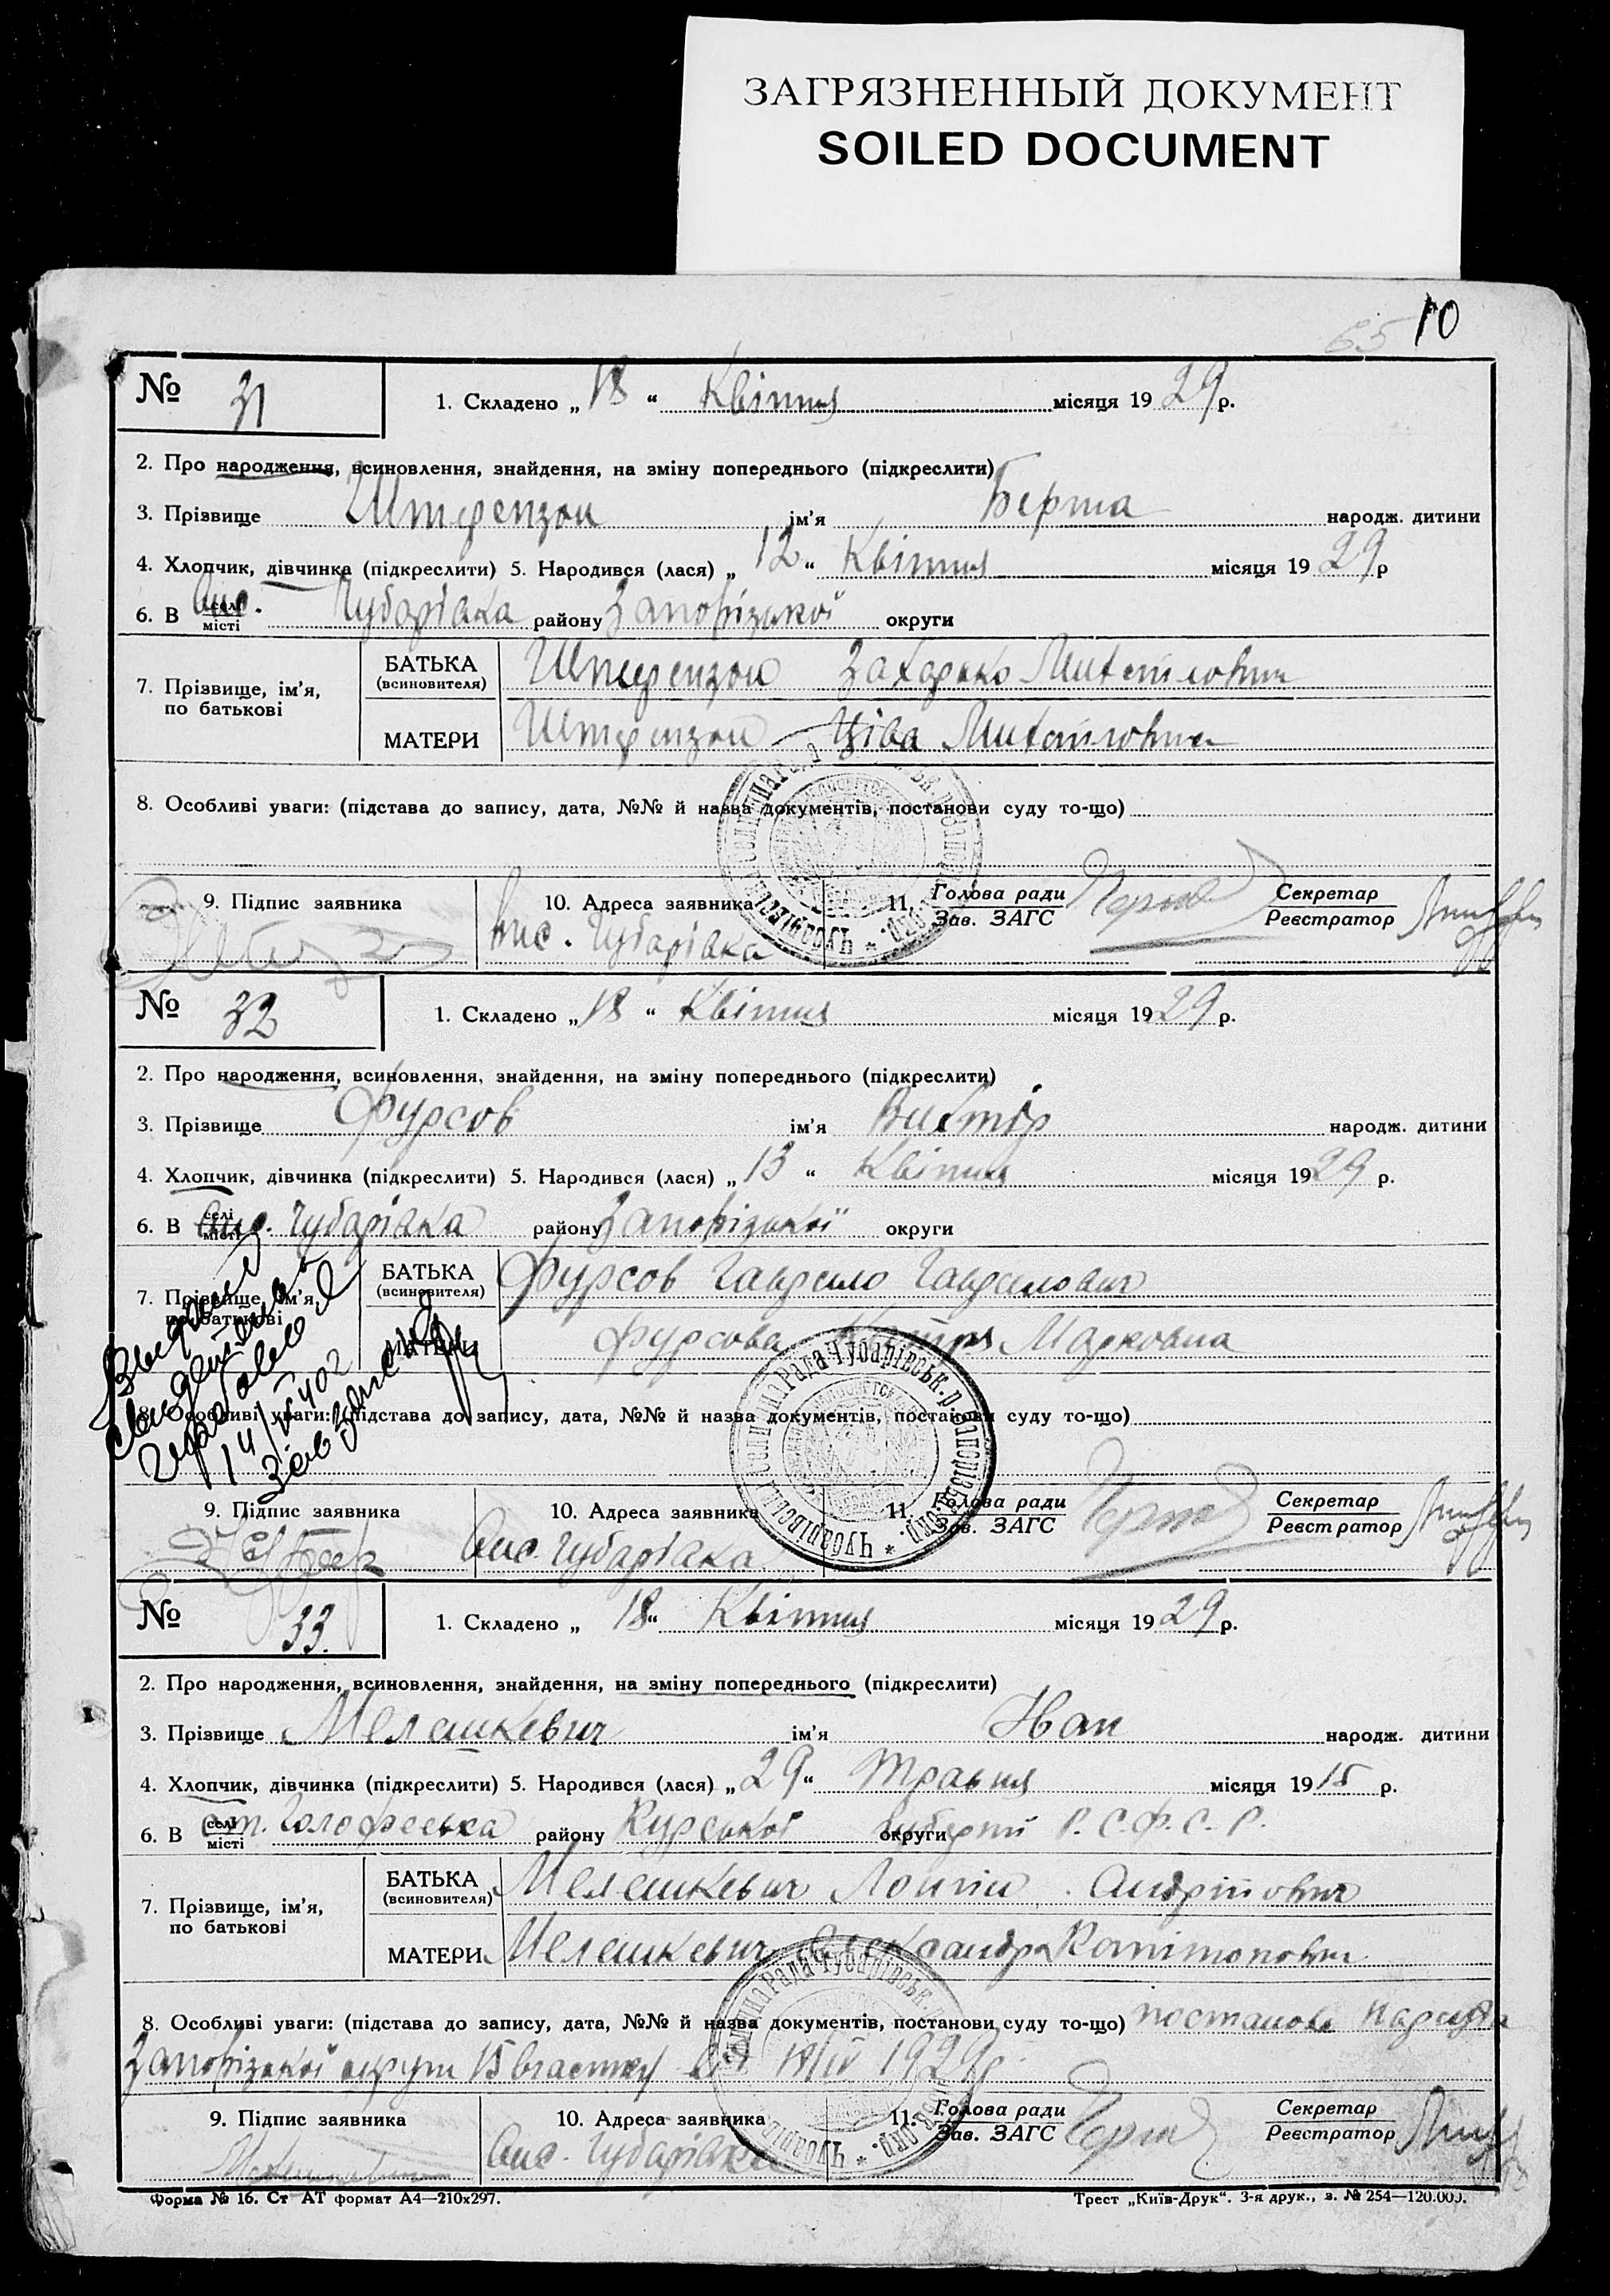 ЗАГРЯЗНЕННЫЙ ДОКУМЕНТ
SOILED DOCUMENT
65 10
№ 31 1. Складено „ 18 “ Квітня місяця 19 29 р.
2. Про народження, всиновлення, знайдення, на зміну попереднього (підкреслити)
3. Прізвище Штерензон ім'я Берта народж. дитини
4. Хлопчик, дівчинка (підкреслити) 5. Народився (лася) „ 12 “ Квітня місяця 19 29 р
6. В селі місті Чубарівка району Запорізької округи
7. Прізвище, ім'я, по батькові
БАТЬКА (всиновителя) Штерензон Михайлович
МАТЕРИ Штерензон Ціва Михайловна
8. Особливі уваги: (підстава до запису, дата, №№ й назва документів, постанови суду то-що)
9. Підпис заявника 10. Адреса заявника 11. Голова ради Зав. ЗАГС Секретар Реєстратор
Чубарівка
№ 32 1. Складено „ 18 “ Квітня місяця 19 29 р.
2. Про народження, всиновлення, знайдення, на зміну попереднього (підкреслити)
3. Прізвище Фурсов ім'я Віктор народж. дитини
4. Хлопчик, дівчинка (підкреслити) 5. Народився (лася) „ 13 “ Квітня місяця 19 29 р.
6. В селі місті Чубарівка району Запорізької округи
7. Прізвище, ім'я, по батькові
БАТЬКА (всиновителя) Фурсов Гаврило Гаврилович
МАТЕРИ Фурсова Марковна
8. Особливі уваги: (підстава до запису, дата, №№ й назва документів, постанови суду то-що)
9. Підпис заявника 10. Адреса заявника 11. Голова ради Зав. ЗАГС Секретар Реєстратор
Чубарівка
Чубарівська Селищна Рада Чубарівськ. р. Запорізьк. окр.
№ 33. 1. Складено „ 18 “ Квітня місяця 19 29 р.
2. Про народження, всиновлення, знайдення, на зміну попереднього (підкреслити)
3. Прізвище Мелешкевич ім'я Іван народж. дитини
4. Хлопчик, дівчинка (підкреслити) 5. Народився (лася) „ 29 “ Травня місяця 19 15 р.
6. В селі місті ст. району Курської округи губерні Р.С.Ф.С.Р.
7. Прізвище, ім'я, по батькові
БАТЬКА (всиновителя) Мелешкевич Лонгін Андрійович
МАТЕРИ Мелешкевич Олександра Капітоновна
8. Особливі уваги: (підстава до запису, дата, №№ й назва документів, постанови суду то-що) постанова Нарсуда
Запорізької округи 15 1929 р.
9. Підпис заявника 10. Адреса заявника 11. Голова ради Зав. ЗАГС Секретар Реєстратор
Чубарівка
Форма № 16. Ст АТ формат А4—210х297. Трест „Київ-Друк“. 3-я друк., з. № 254—120.000.